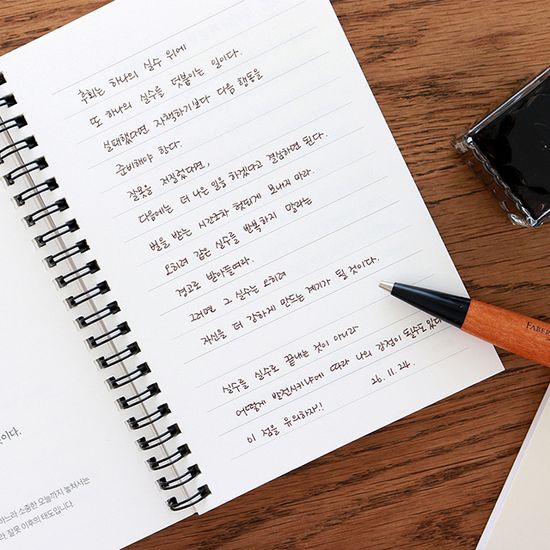 후회는 하나의 실수 위에
또 하나의 실수를 덧붙이는 일이다.
실패했다면, 자책하기보다 다음 행동을
준비해야 한다.
잘못을 저질렀다면,
다음에는 더 나은 일을 하겠다고 결심하면 된다.
벌을 받는 시간조차 헛되게 보내지 마라.
오히려 같은 실수를 반복하지 말라는
경고로 받아들여라.
그러면 그 실수는 오히려
자신을 더 강하게 만드는 계기가 될 것이다.
실수를 실수로 끝내는 것이 아니라
어떻게 발전시키냐에 따라 나의 강점이 될수도 있다
이 점을 유의하자!! 26. 11. 24
것이다.
하느라 소중한 오늘까지 놓쳐서는
라, 잘못 이후의 태도입니다.
FABER